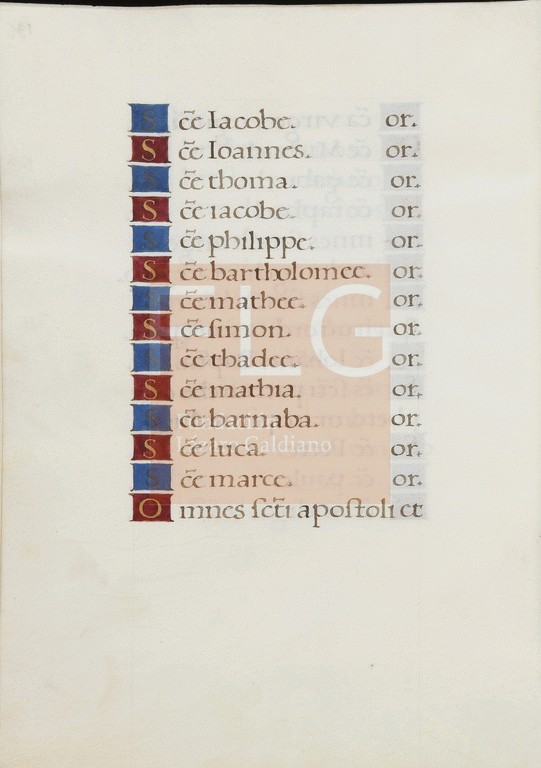 S c̄e Iacobe. or.
S c̄e Ioannes. or.
S c̄e thoma. or.
S c̄e iacobe. or.
S c̄e philippe. or.
S c̄e bartholomee. or.
S c̄e mathee. or.
S c̄e ſimon. or.
S c̄e thadee. or.
S c̄e mathia. or.
S c̄e barnaba. or.
S c̄e luca. or.
S c̄e marce. or.
O mnes ſc̄ti apoſtoli et
FLG
Lázaro Galdiano